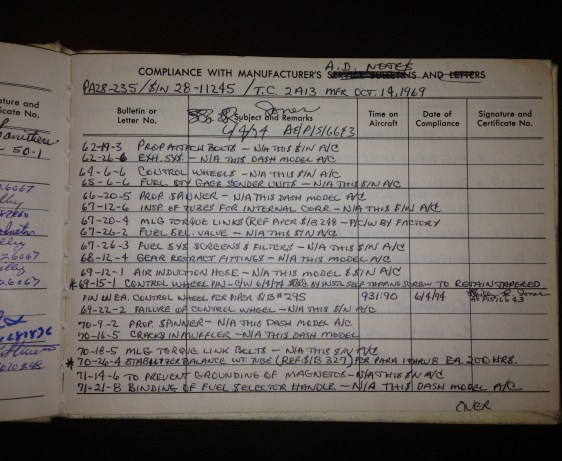 A.D. NOTES
COMPLIANCE WITH MANUFACTURER'S SERVICE BULLETINS AND LETTERS
PA28-235/S/N 28-11245 /T.C. 2A13 MFR OCT. 14, 1969
Bulletin or Letter No.
Subject and Remarks
Time on Aircraft
Date of Compliance
Signature and Certificate No.
Jones
6/4/74 A&P/S/6643
62-19-3 PROP ATTACH BOLTS - N/A THIS S/N A/C
62-26-6 EXH. SYS. - N/A THIS DASH MODEL A/C
64-6-6 CONTROL WHEELS - N/A THIS S/N A/C
65-6-6 FUEL QTY GAGE SENDER UNITS - N/A THIS S/N A/C
66-20-5 PROP SPINNER - N/A THIS DASH MODEL A/C
67-12-6 INSP. OF TUBES FOR INTERNAL CORR. - N/A THIS S/N A/C
67-20-4 MLG TORQUE LINKS (REF PIPER SB 248 - P/C/W BY FACTORY
67-26-2 FUEL SEL. VALVE - N/A THIS S/N A/C
67-26-3 FUEL SYS SCREENS & FILTERS - N/A THIS S/N A/C
68-12-4 GEAR RETRACT FITTINGS - N/A THIS S/N A/C
69-12-1 AIR INDUCTION HOSE - N/A THIS MODEL & S/N A/C
* 69-15-1 CONTROL WHEEL PIN - C/W 6/4/74 BY INSTL SELF TAPPING SCREW TO RETAIN TAPERED
PIN IN EA. CONTROL WHEEL PER PIPER SB #295 931.90 6/4/74
69-22-2 FAILURE OF CONTROL WHEEL - N/A THIS S/N A/C
70-9-2 PROP. SPINNER - N/A THIS DASH MODEL A/C
70-16-5 CRACKS IN MUFFLER - N/A THIS DASH MODEL
70-18-5 MLG TORQUE LINK BOLTS - N/A THIS S/N A/C
* 70-26-4 STABILATOR BALANCE WT. TUBE (REF. SB 327) PER PARA 1 THRU 8 EA. 200 HRS.
71-14-6 TO PREVENT GROUNDING OF MAGNETOS - N/A THIS S/N A/C
71-21-8 BINDING OF FUEL SELECTOR HANDLE - N/A THIS DASH MODEL A/C
OVER